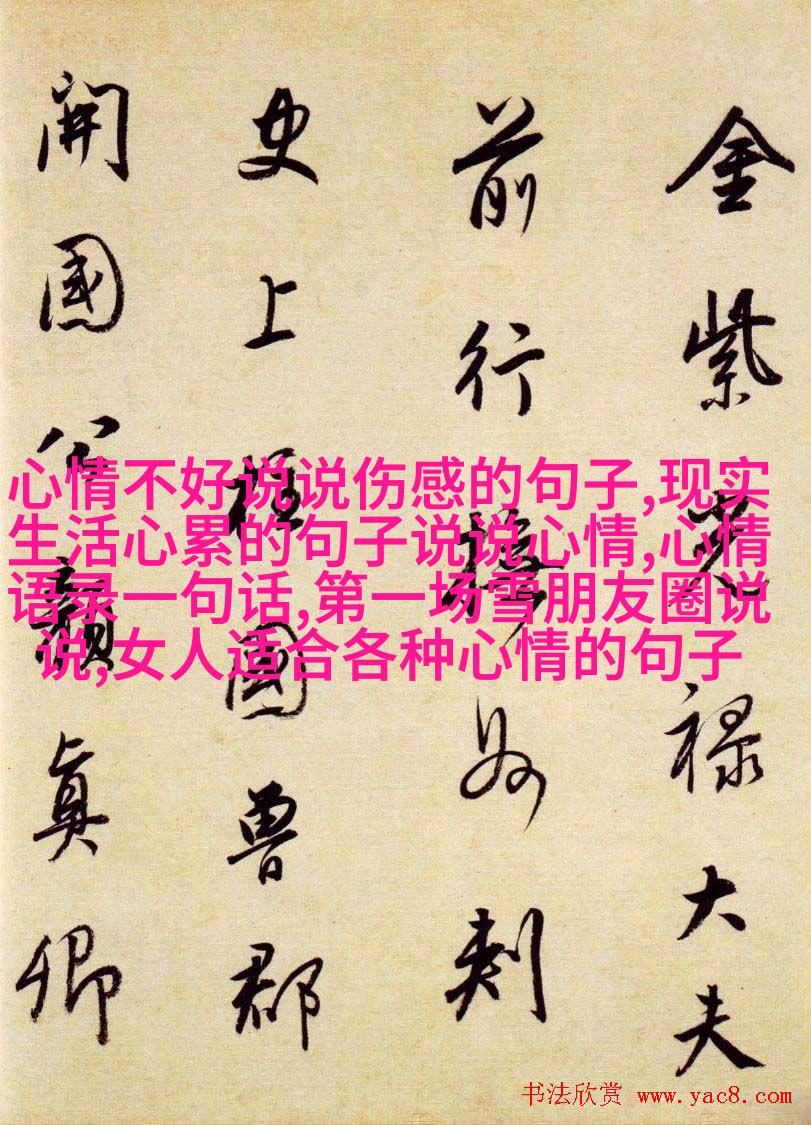 金紫光禄大夫
前行撫州刺
史上柱國魯郡
開國公顔真卿
心情不好说说伤感的句子,现实
生活心累的句子说说心情,心情
语录一句话,第一场雪朋友圈说
说,女人适合各种心情的句子
书法欣赏 www.yac8.com